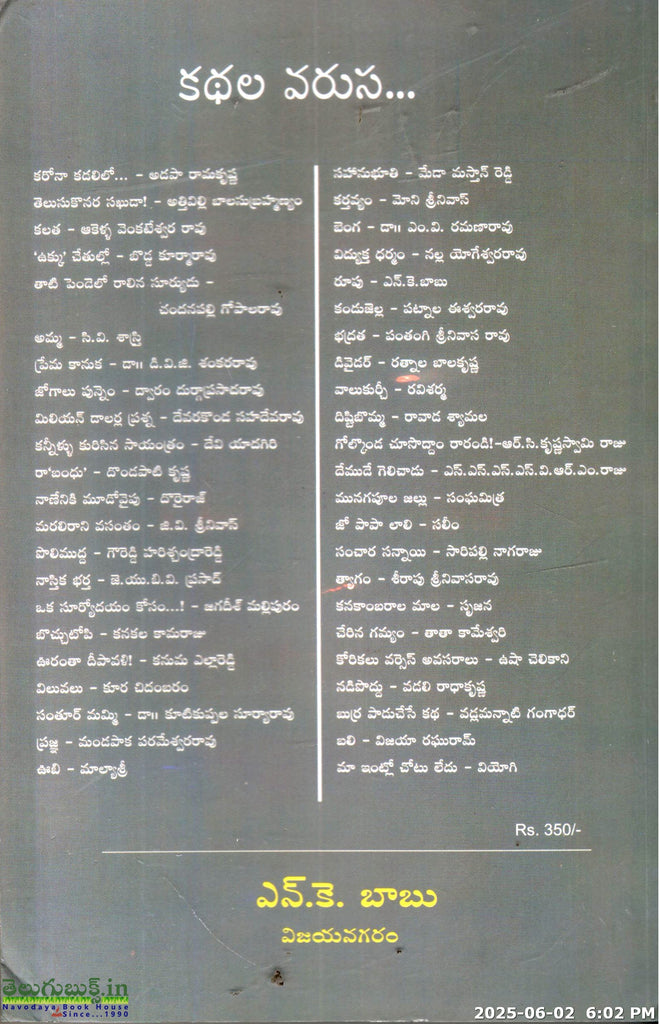 కథల వరుస...
కరోనా కదలిలో... - అడపా రామకృష్ణ
తెలుసుకొనర సఖుడా! - అత్తివిల్లి బాలసుబ్రహ్మణ్యం
కలత - ఆకెళ్ళ వెంకటేశ్వర రావు
'ఉక్కు' చేతుల్లో - బొడ్డ కూర్మారావు
తాటి పెండెలో రాలిన సూర్యుడు -
చందనపల్లి గోపాలరావు
అమ్మ - సి.వి. శాస్త్రి
ప్రేమ కానుక - డా॥ డి.వి.జి. శంకరరావు
జోగాలు పున్నెం - ద్వారం దుర్గాప్రసాదరావు
మిలియన్ డాలర్ల ప్రశ్న - దేవరకొండ సహదేవరావు
కన్నీళ్ళు కురిసిన సాయంత్రం - దేవి యాదగిరి
రా'బంధు' - దొండపాటి కృష్ణ
నాణేనికి మూడోవైపు - దొరైరాజ్
మరలిరాని వసంతం - జి.వి. శ్రీనివాస్
పొలిముద్ద - గౌరెడ్డి హరిశ్చంద్రారెడ్డి
నాస్తిక భర్త - జె.యు.బి.వి. ప్రసాద్
ఒక సూర్యోదయం కోసం...! - జగదీశ్ మల్లిపురం
బొచ్చుటోపి - కనకల కామరాజు
ఊరంతా దీపావళి! - కనుమ ఎల్లారెడ్డి
విలువలు - కూర చిదంబరం
సంతూర్ మమ్మి - డా॥ కూటికుప్పల సూర్యారావు
ప్రజ్ఞ - మండపాక పరమేశ్వరరావు
ఊబి - మాల్యాశ్రీ
సహానుభూతి - మేడా మస్తాన్ రెడ్డి
కర్తవ్యం - మోని శ్రీనివాస్
బెంగ - డా॥ ఎం.వి. రమణారావు
విద్యుక్త ధర్మం - నల్ల యోగేశ్వరరావు
రూపు - ఎన్.కె.బాబు
కండుజెల్ల - పట్నాల ఈశ్వరరావు
భద్రత - పంతంగి శ్రీనివాస రావు
డివైడర్ - రత్నాల బాలకృష్ణ
వాలుకుర్చీ - రవిశర్మ
దిష్టిబొమ్మ - రావాడ శ్యామల
గోల్కొండ చూసొద్దాం రారండి!-ఆర్.సి.కృష్ణస్వామి రాజు
దేముడే గెలిచాడు - ఎస్.ఎస్.ఎస్.ఎస్.వి.ఆర్.ఎం.రాజు
మునగపూల జల్లు - సంఘమిత్ర
జో పాపా లాలి - సలీం
సంచార సన్నాయి - సారిపల్లి నాగరాజు
త్యాగం - శీరాపు శ్రీనివాసరావు
కనకాంబరాల మాల - సృజన
చేరిన గమ్యం - తాతా కామేశ్వరి
కోరికలు వర్సెస్ అవసరాలు - ఉషా చెలికాని
నడిపొద్దు - వడలి రాధాకృష్ణ
బుర్ర పాడుచేసే కథ - వడ్లమన్నాటి గంగాధర్
బలి - విజయా రఘురామ్
మా ఇంట్లో చోటు లేదు - వియోగి
Rs. 350/-
ఎన్.కె. బాబు
విజయనగరం
తెలుగుబుక్స్.in
Navodaya Book House
Since...1990
2025-06-02 6:02 PM